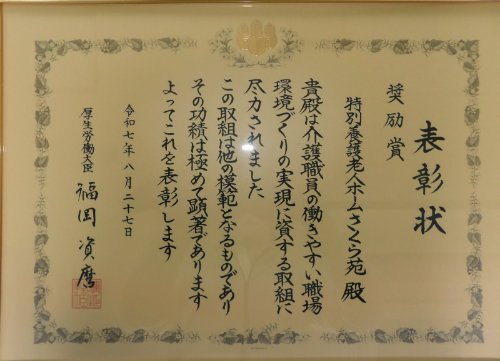 表彰状
奨励賞
特別養護老人ホームさくら苑 殿
貴殿は介護職員の働きやすい職場
環境づくりの実現に資する取組に
尽力されました
この取組は他の模範となるものであり
その功績は極めて顕著であります
よってこれを表彰します
令和七年八月二十七日
厚生労働大臣 福岡資麿